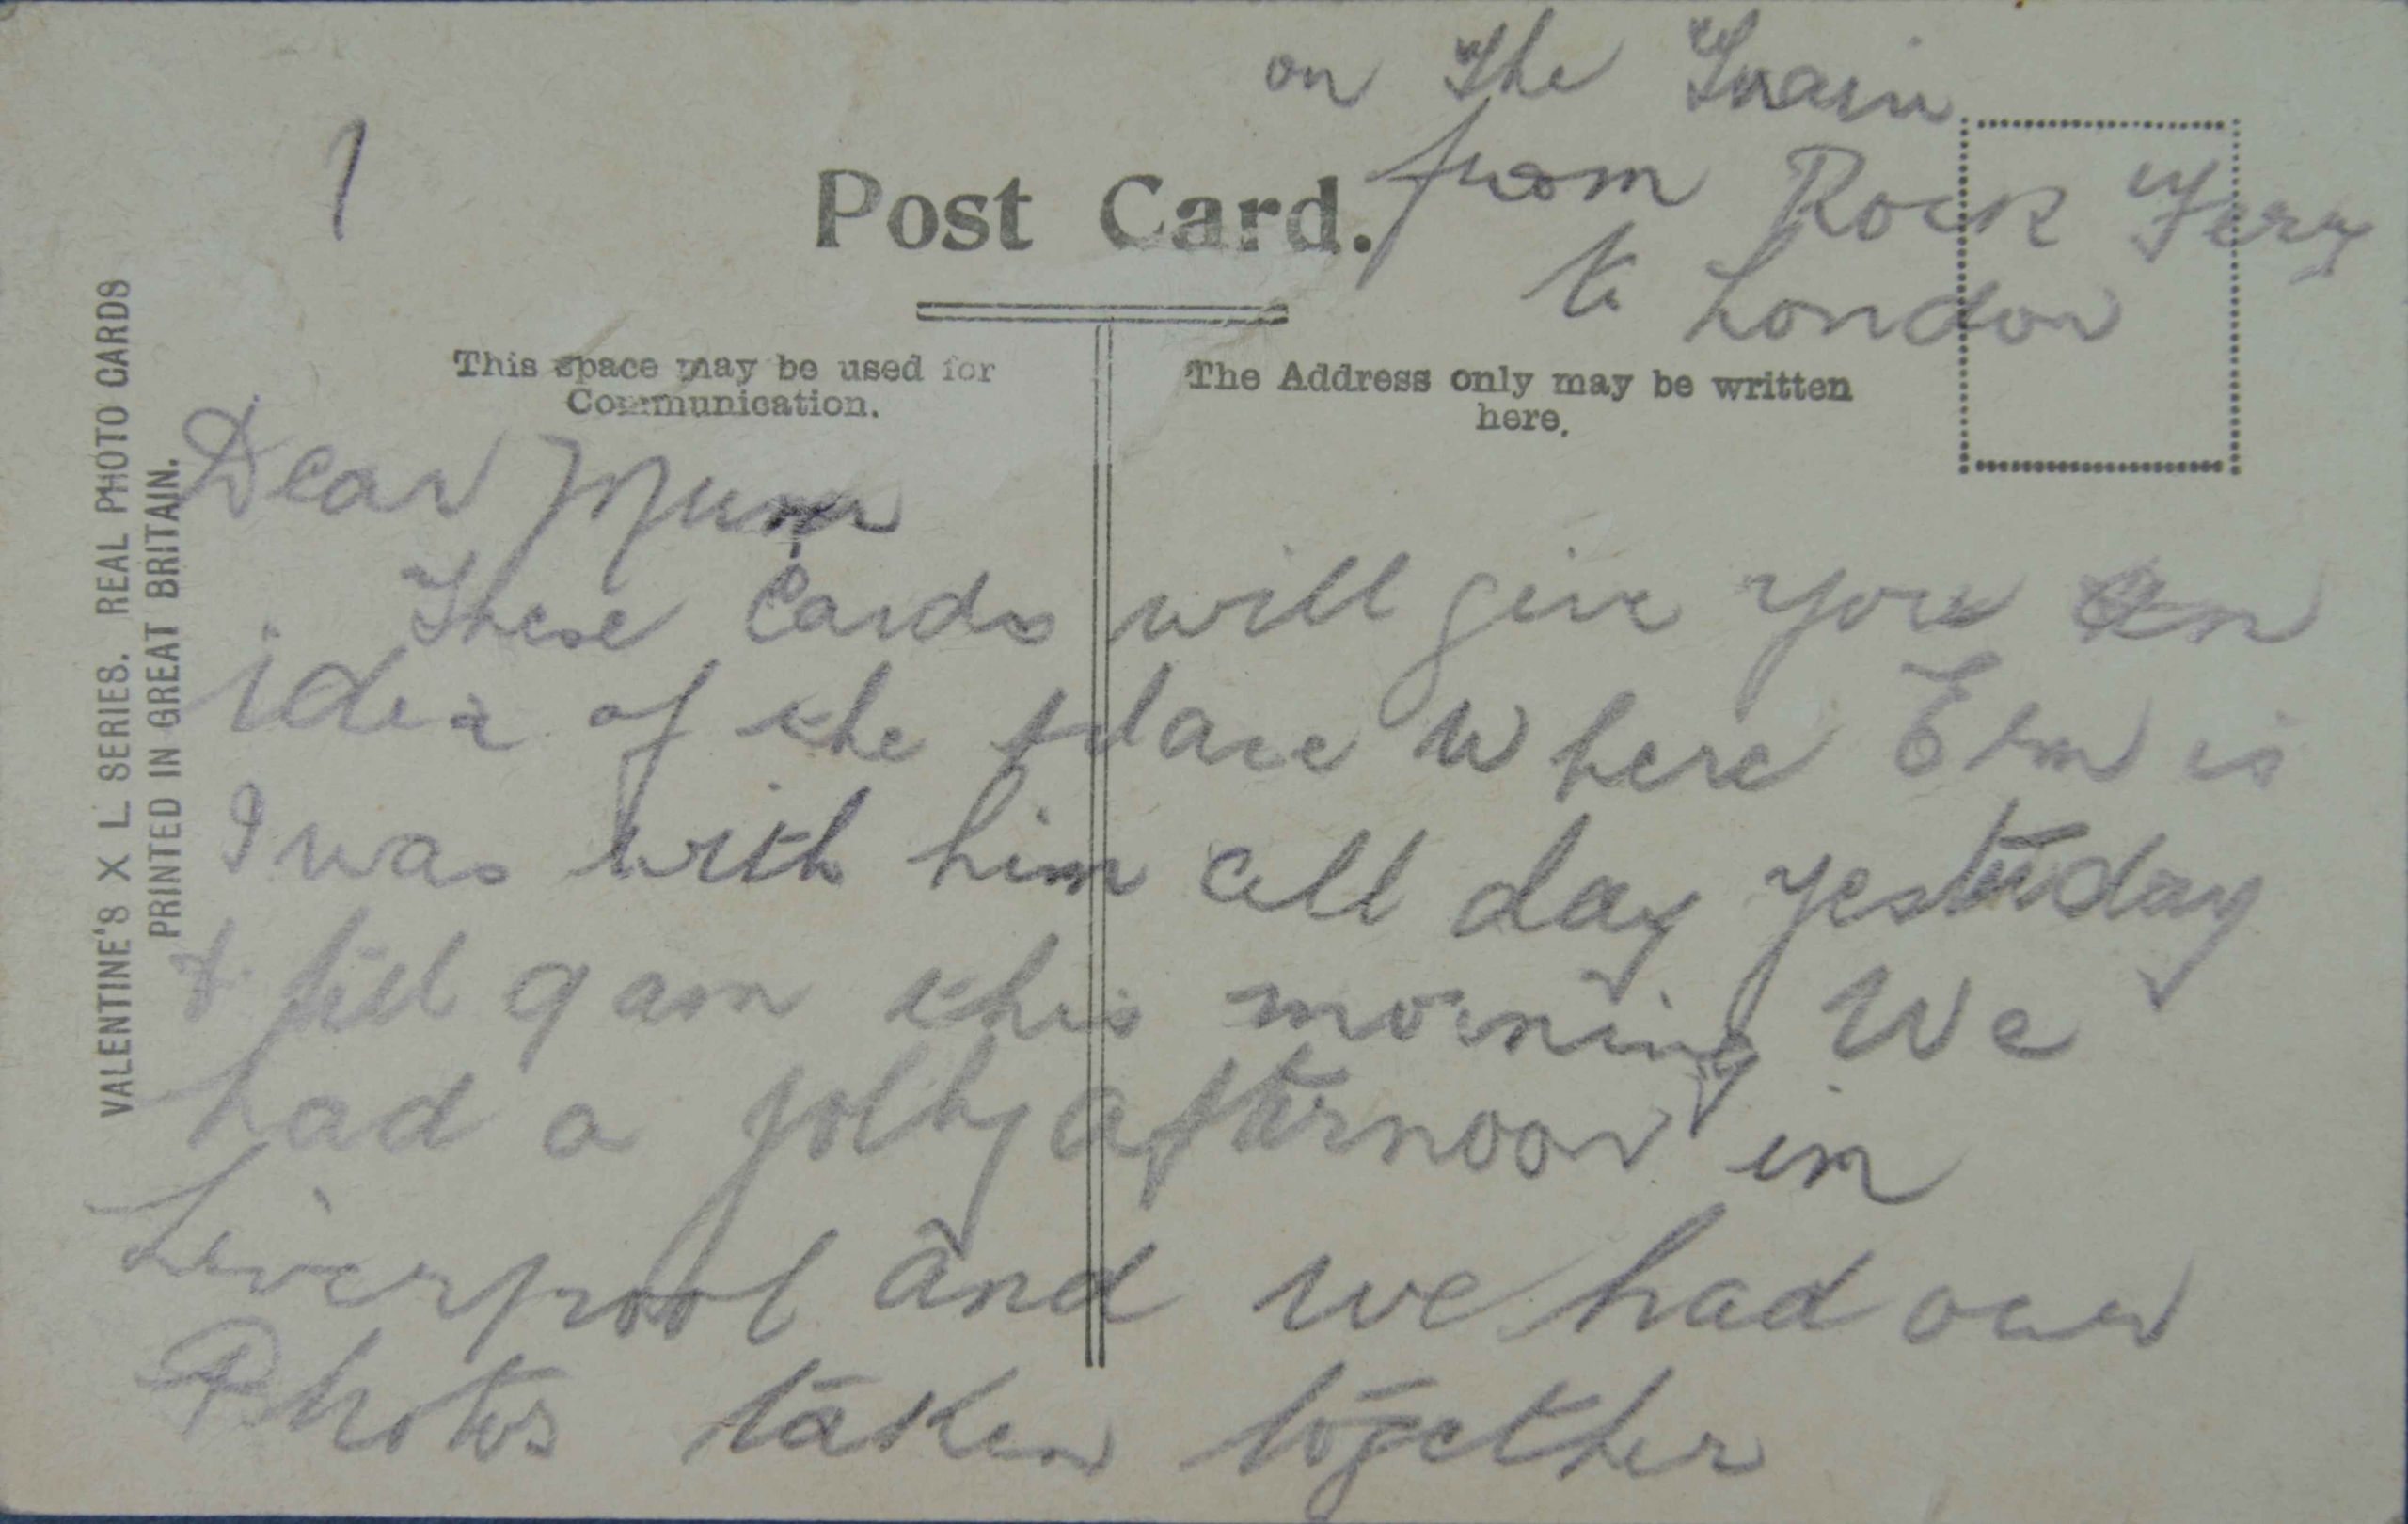 on The Train
1
Post Card.
from Rock Fery
to London
This space may be used for
Communication.
The Address only may be written
here.
VALENTINE'S X L SERIES. REAL PHOTO CARDS
PRINTED IN GREAT BRITAIN.
Dear Mum
These Cards will give you an
idea of the place where Elm is
I was with him all day yesterday
& till 9 am this morning We
had a jolly afternoon in
Liverpool and we had our
Photos taken together